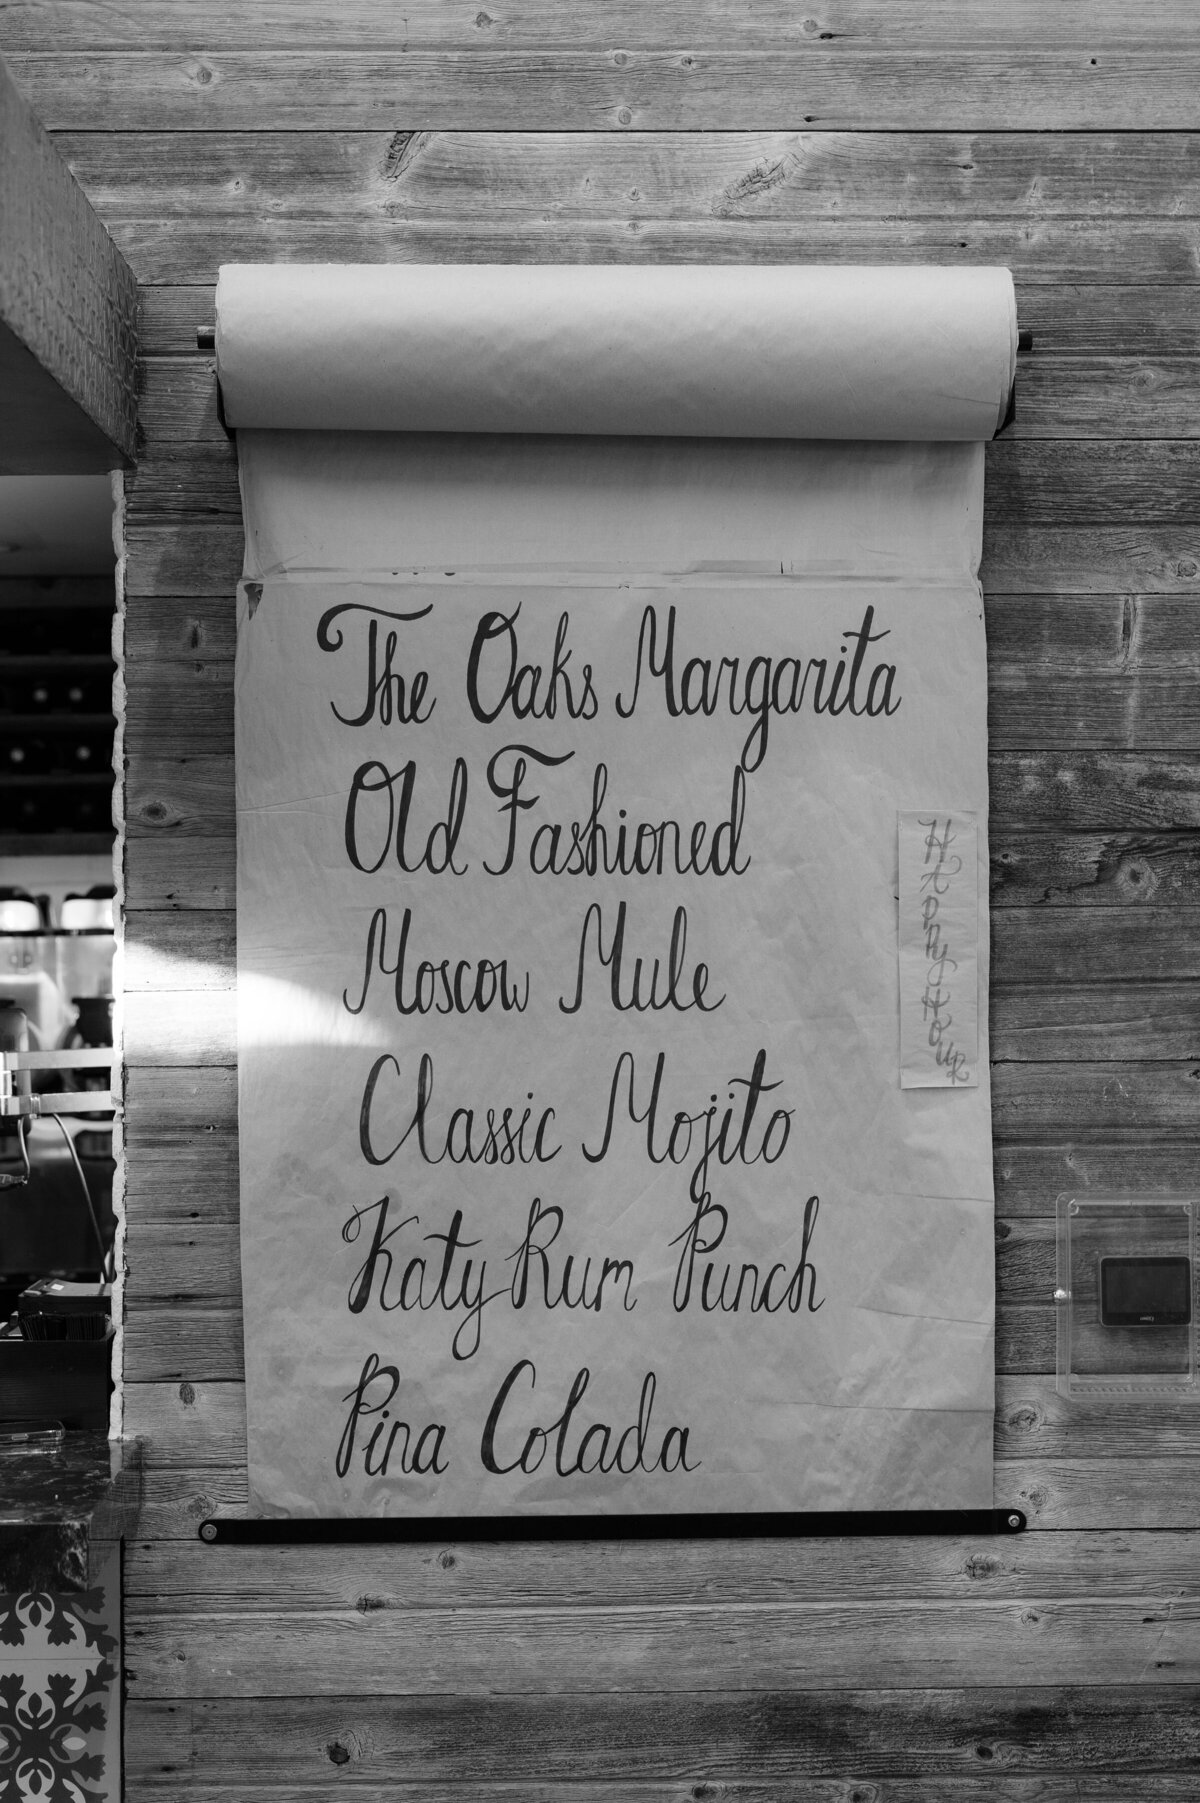 The Oaks Margarita
Old Fashioned
Moscow Mule
Classic Mojito
Katy Rum Punch
Pina Colada